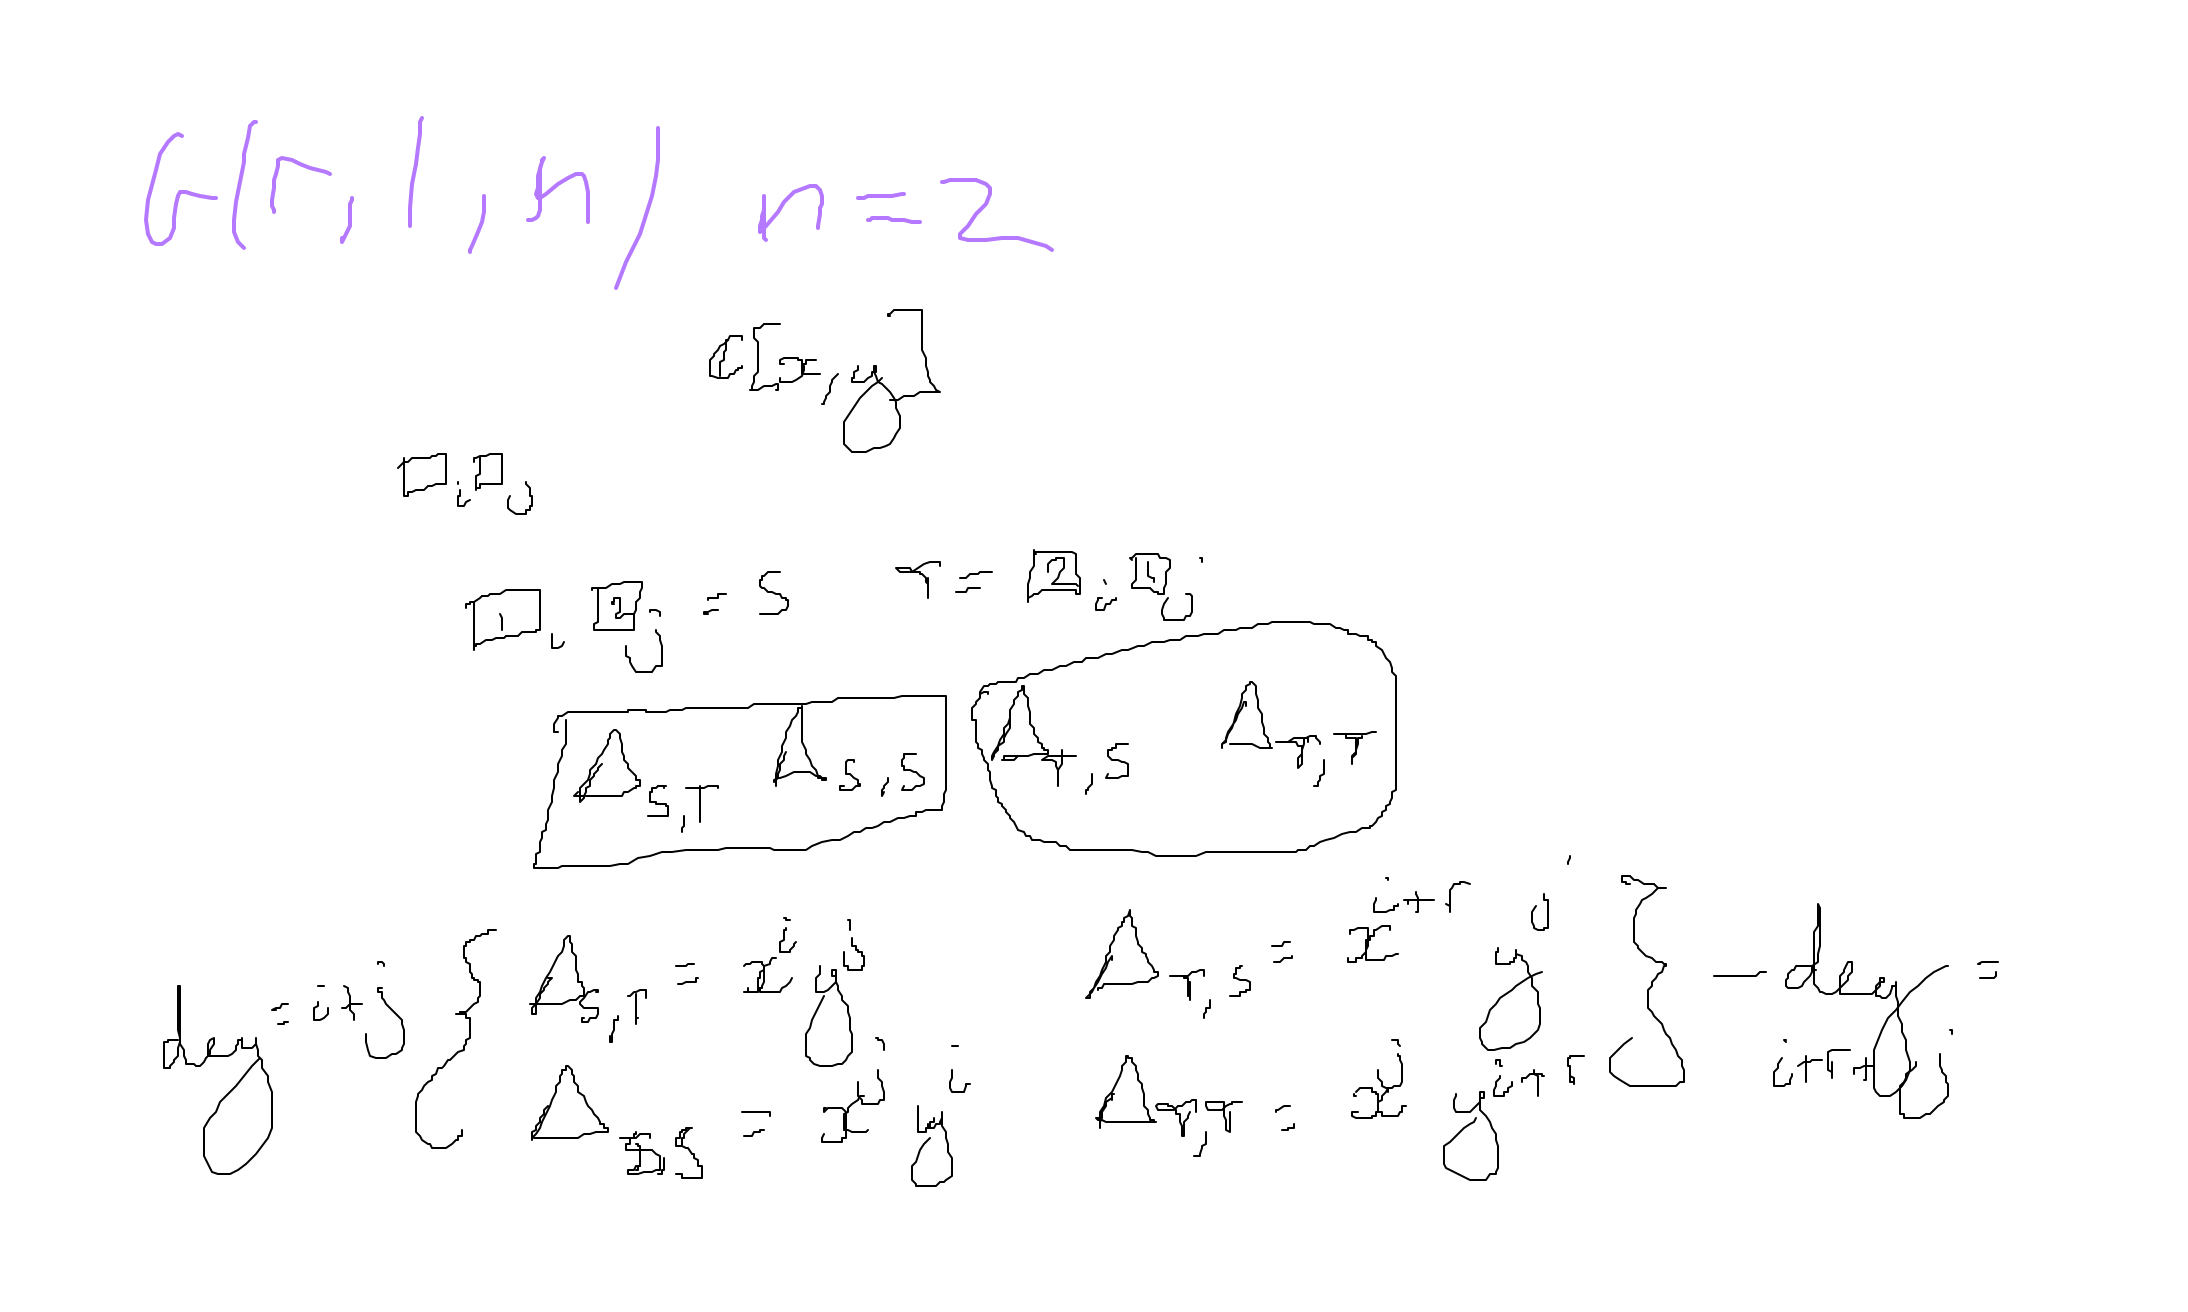 G(r, 1, n) n = 2
C[x, y]
□i, □j
[1]i, [2]j = S T = [2]i, [1]j
Δ_{S,T} Δ_{S,S} Δ_{T,S} Δ_{T,T}
deg = i+j { Δ_{S,T} = x^i y^j Δ_{T,S} = x^{i+r} y^j } - deg = i+r+j
Δ_{SS} = x^j y^i Δ_{T,T} = x^j y^{i+r}